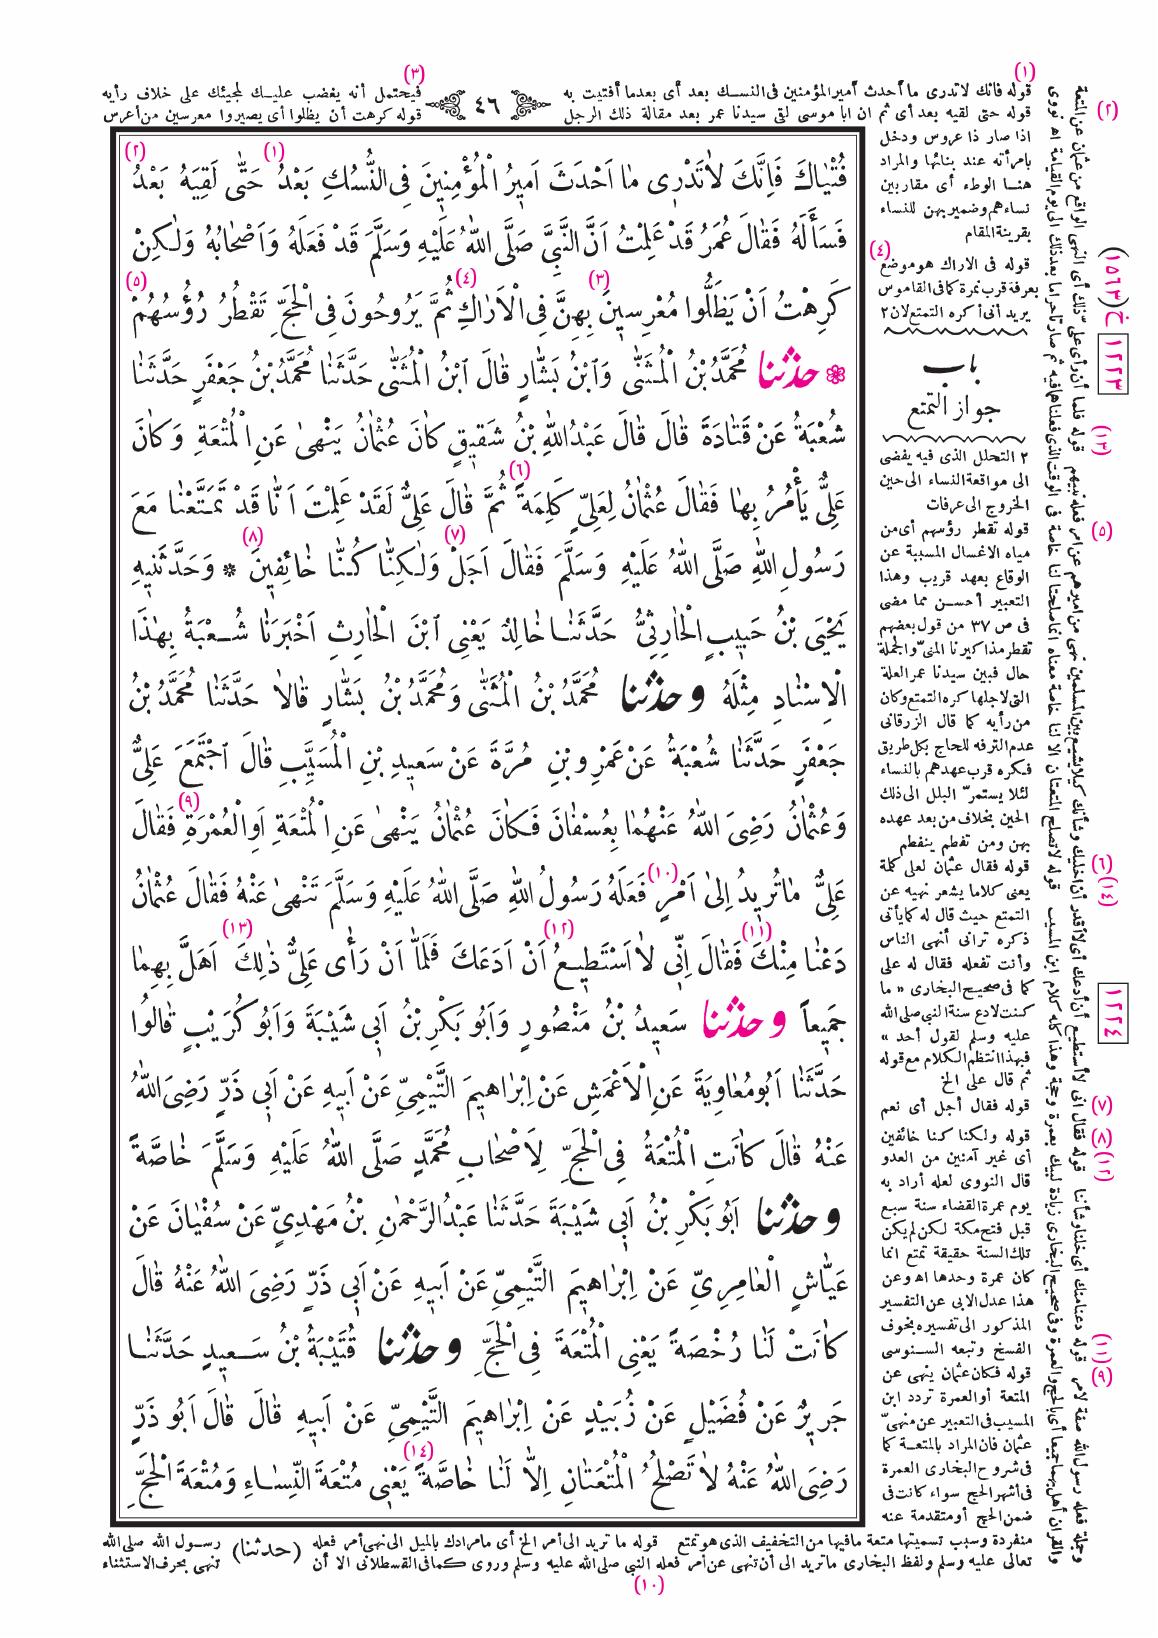 (١)
(٣)
قوله فانك لاتدرى ما أحدث أمير المؤمنين فى النسك بعد أى بعدما أفتيت به
قوله حتى لقيه بعد أى ثم ان ابا موسى لقى سيدنا عمر بعد مقالة ذلك الرجل
٤٦
فيحتمل أنه يغضب عليك لمجيئك على خلاف رأيه
قوله كرهت أن يظلوا أى يصيروا معرسين من أعرس
(١) (٢)
فُتْيَاكَ فَإِنَّكَ لَاتَدْرِى مَا اَحْدَثَ اَمِيرُ الْمُؤْمِنِينَ فِى النُّسُكِ بَعْدُ حَتَّى لَقِيَهُ بَعْدُ
فَسَأَلَهُ فَقَالَ عُمَرُ قَدْ عَلِمْتُ اَنَّ النَّبِىَّ صَلَّى اللهُ عَلَيْهِ وَسَلَّمَ قَدْ فَعَلَهُ وَاَصْحَابُهُ وَلٰكِنْ
(٣) (٤) (٥)
كَرِهْتُ اَنْ يَظَلُّوا مُعْرِسِينَ بِهِنَّ فِى الْاَرَاكِ ثُمَّ يَرُوحُونَ فِى الْحَجِّ تَقْطُرُ رُؤُسُهُمْ
❁ حَدَّثَنَا مُحَمَّدُ بْنُ الْمُثَنَّى وَابْنُ بَشَّارٍ قَالَ ابْنُ الْمُثَنَّى حَدَّثَنَا مُحَمَّدُ بْنُ جَعْفَرٍ حَدَّثَنَا
شُعْبَةُ عَنْ قَتَادَةَ قَالَ قَالَ عَبْدُ اللهِ بْنُ شَقِيقٍ كَانَ عُثْمَانُ يَنْهٰى عَنِ الْمُتْعَةِ وَكَانَ
(٦)
عَلِىٌّ يَأْمُرُ بِهَا فَقَالَ عُثْمَانُ لِعَلِىٍّ كَلِمَةً ثُمَّ قَالَ عَلِىٌّ لَقَدْ عَلِمْتَ اَنَّا قَدْ تَمَتَّعْنَا مَعَ
(٧) (٨)
رَسُولِ اللهِ صَلَّى اللهُ عَلَيْهِ وَسَلَّمَ فَقَالَ اَجَلْ وَلٰكِنَّا كُنَّا خَائِفِينَ * وَحَدَّثَنِيهِ
يَحْيَى بْنُ حَبِيبٍ الْحَارِثِىُّ حَدَّثَنَا خَالِدٌ يَعْنِى ابْنَ الْحَارِثِ اَخْبَرَنَا شُعْبَةُ بِهٰذَا
الْاِسْنَادِ مِثْلَهُ وَحَدَّثَنَا مُحَمَّدُ بْنُ الْمُثَنَّى وَمُحَمَّدُ بْنُ بَشَّارٍ قَالَا حَدَّثَنَا مُحَمَّدُ بْنُ
جَعْفَرٍ حَدَّثَنَا شُعْبَةُ عَنْ عَمْرِو بْنِ مُرَّةَ عَنْ سَعِيدِ بْنِ الْمُسَيَّبِ قَالَ اجْتَمَعَ عَلِىٌّ
(٩)
وَعُثْمَانُ رَضِىَ اللهُ عَنْهُمَا بِعُسْفَانَ فَكَانَ عُثْمَانُ يَنْهٰى عَنِ الْمُتْعَةِ اَوِ الْعُمْرَةِ فَقَالَ
(١٠)
عَلِىٌّ مَا تُرِيدُ اِلٰى اَمْرٍ فَعَلَهُ رَسُولُ اللهِ صَلَّى اللهُ عَلَيْهِ وَسَلَّمَ تَنْهٰى عَنْهُ فَقَالَ عُثْمَانُ
(١١) (١٢) (١٣)
دَعْنَا مِنْكَ فَقَالَ اِنِّى لَا اَسْتَطِيعُ اَنْ اَدَعَكَ فَلَمَّا اَنْ رَأَى عَلِىٌّ ذٰلِكَ اَهَلَّ بِهِمَا
جَمِيعاً وَحَدَّثَنَا سَعِيدُ بْنُ مَنْصُورٍ وَاَبُو بَكْرِ بْنُ اَبِى شَيْبَةَ وَاَبُو كُرَيْبٍ قَالُوا
حَدَّثَنَا اَبُو مُعَاوِيَةَ عَنِ الْاَعْمَشِ عَنْ اِبْرَاهِيمَ التَّيْمِىِّ عَنْ اَبِيهِ عَنْ اَبِى ذَرٍّ رَضِىَ اللهُ
عَنْهُ قَالَ كَانَتِ الْمُتْعَةُ فِى الْحَجِّ لِاَصْحَابِ مُحَمَّدٍ صَلَّى اللهُ عَلَيْهِ وَسَلَّمَ خَاصَّةً
وَحَدَّثَنَا اَبُو بَكْرِ بْنُ اَبِى شَيْبَةَ حَدَّثَنَا عَبْدُ الرَّحْمٰنِ بْنُ مَهْدِىٍّ عَنْ سُفْيَانَ عَنْ
عَيَّاشٍ الْعَامِرِىِّ عَنْ اِبْرَاهِيمَ التَّيْمِىِّ عَنْ اَبِيهِ عَنْ اَبِى ذَرٍّ رَضِىَ اللهُ عَنْهُ قَالَ
كَانَتْ لَنَا رُخْصَةً يَعْنِى الْمُتْعَةَ فِى الْحَجِّ وَحَدَّثَنَا قُتَيْبَةُ بْنُ سَعِيدٍ حَدَّثَنَا
جَرِيرٌ عَنْ فُضَيْلٍ عَنْ زُبَيْدٍ عَنْ اِبْرَاهِيمَ التَّيْمِىِّ عَنْ اَبِيهِ قَالَ قَالَ اَبُو ذَرٍّ
(١٤)
رَضِىَ اللهُ عَنْهُ لَا تَصْلُحُ الْمُتْعَتَانِ اِلَّا لَنَا خَاصَّةً يَعْنِى مُتْعَةَ النِّسَاءِ وَمُتْعَةَ الْحَجِّ
اذا صار ذا عروس ودخل
بامرأته عند بنائها والمراد
هنا الوطء أى مقاربين
نساءهم وضمير بهن للنساء
بقرينة المقام
(٤)
قوله فى الاراك هو موضع
بعرفة قرب نمرة كما فى القاموس
يريد أنى أكره التمتع لان ٢
باب
جواز التمتع
٢ التحلل الذى فيه يفضى
الى مواقعة النساء الى حين
الخروج الى عرفات
قوله تقطر رؤسهم أى من
مياه الاغتسال المسببة عن
الوقاع بعهد قريب وهذا
التعبير أحسن مما مضى
فى ص ٣٧ من قول بعضهم
تقطر مذاكيرنا المنى والجملة
حال فبين سيدنا عمر العلة
التى لاجلها كره التمتع وكان
من رأيه كما قال الزرقانى
عدم الترفه للحاج بكل طريق
فكره قرب عهدهم بالنساء
لئلا يستمر البلل الى ذلك
الحين بخلاف من بعد عهده
بهن ومن تفطم ينفطم
قوله فقال عثمان لعلى كلمة
يعنى كلاما يشعر نهيه عن
التمتع حيث قال له كما يأتى
ذكره ترانى أنهى الناس
وأنت تفعله فقال له على
كما فى صحيح البخارى « ما
كنت لادع سنة النبى صلى الله
عليه وسلم لقول أحد »
فبهذا انتظم الكلام مع قوله
ثم قال على الخ
قوله فقال أجل أى نعم
قوله ولكنا كنا خائفين
أى غير آمنين من العدو
قال النووى لعله أراد به
يوم عمرة القضاء سنة سبع
قبل فتح مكة لكن لم يكن
تلك السنة حقيقة تمتع انما
كان عمرة وحدها اه وعن
هذا عدل الابى عن التفسير
المذكور الى تفسيره بخوف
الفسخ وتبعه السنوسى
قوله فكان عثمان ينهى عن
المتعة أو العمرة تردد ابن
المسيب فى التعبير عن منهى
عثمان فان المراد بالمتعة كما
فى شروح البخارى العمرة
فى أشهر الحج سواء كانت فى
ضمن الحج أو متقدمة عنه
(٢)
خ (١٥٦٣)
١٢٢٣
(١٣)
(٥)
(٦)(١٤)
١٢٢٤
(٧)
(٨)(١٢)
(١١)(٩)
منفردة وسبب تسميتها متعة مافيها من التخفيف الذى هو تمتع قوله ما تريد الى أمر الخ أى ما مرادك بالميل الى نهى أمر فعله رسول الله صلى الله
تعالى عليه وسلم ولفظ البخارى ما تريد الى أن تنهى عن أمر فعله النبى صلى الله عليه وسلم وروى كما فى القسطلانى الا أن تنهى بحرف الاستثناء
(حدثنا)
(١٠)